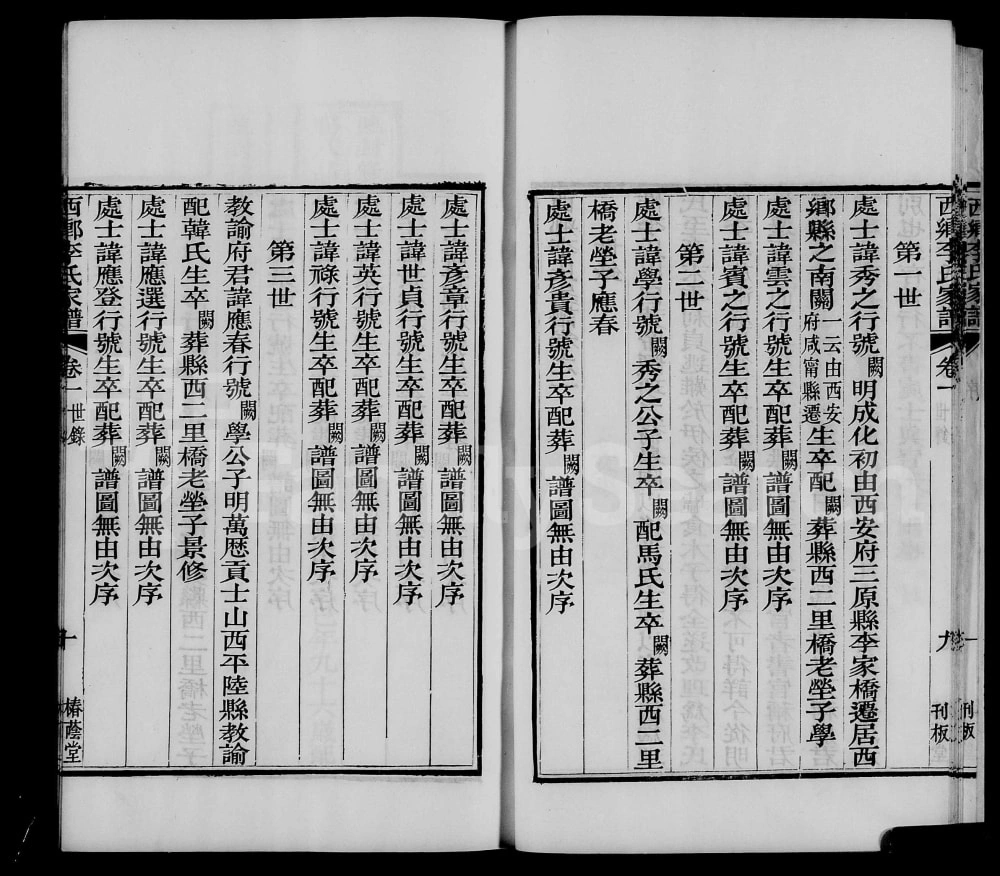 第一世
處士諱秀之行號闕明成化初由西安府三原縣李家橋遷居西
鄉縣之南關一云由西安府咸甯縣遷生卒配闕葬縣西二里橋老塋子學
處士諱雲之行號生卒配葬闕譜圖無由次序
處士諱賓之行號生卒配葬闕譜圖無由次序
第二世
處士諱學行號闕秀之公子生卒闕配馬氏生卒闕葬縣西二里
橋老塋子應春
處士諱彥貴行號生卒配葬闕譜圖無由次序
西鄉李氏家譜 卷一 九 刊板
處士諱彥章行號生卒配葬闕譜圖無由次序
處士諱世貞行號生卒配葬闕譜圖無由次序
處士諱英行號生卒配葬闕譜圖無由次序
處士諱祿行號生卒配葬闕譜圖無由次序
第三世
教諭府君諱應春行號闕學公子明萬歷貢士山西平陸縣教諭
配韓氏生卒闕葬縣西二里橋老塋子景修
處士諱應選行號生卒配葬闕譜圖無由次序
處士諱應登行號生卒配葬闕譜圖無由次序
西鄉李氏家譜 卷一 世錄 十 椿蔭堂